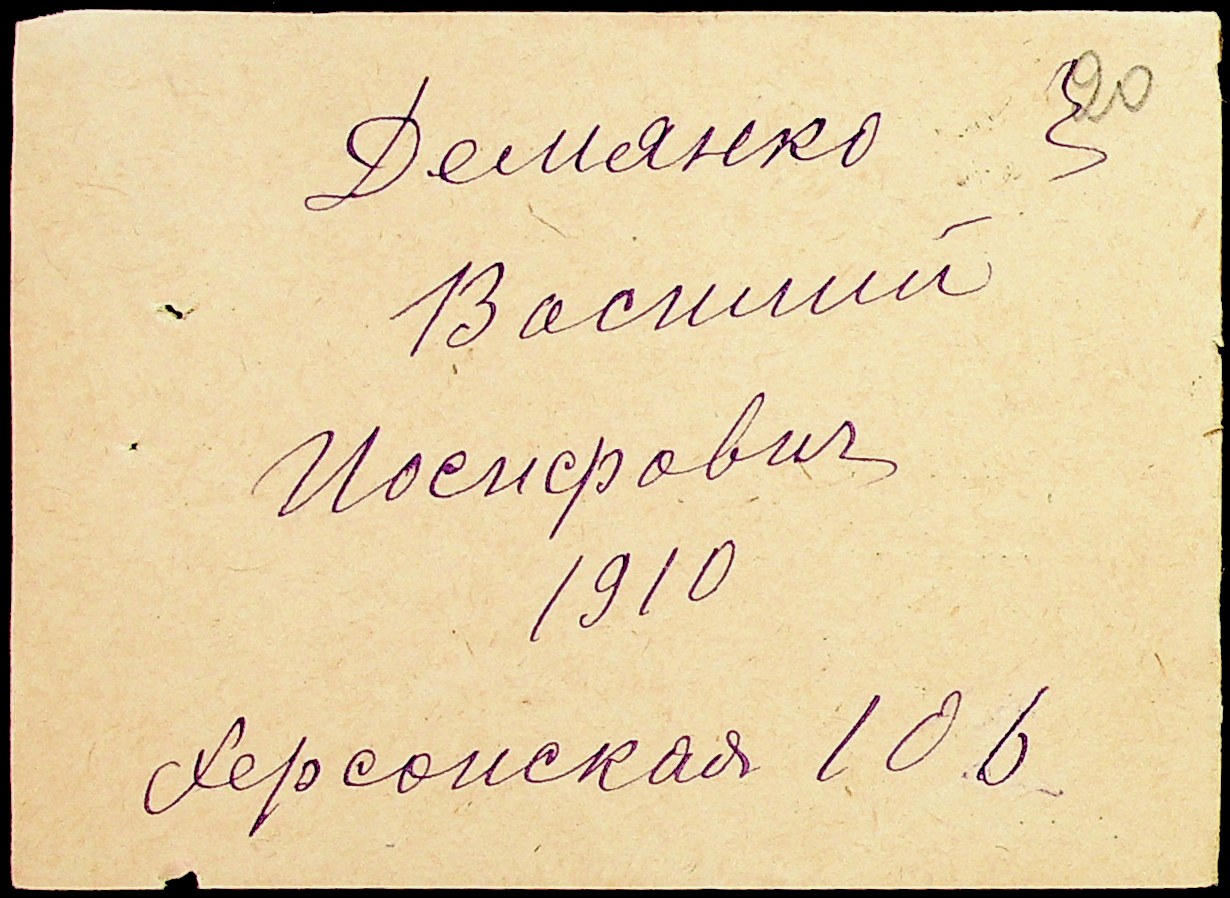 20
Демянко
Василий
Иосифович
1910
Херсонская 106